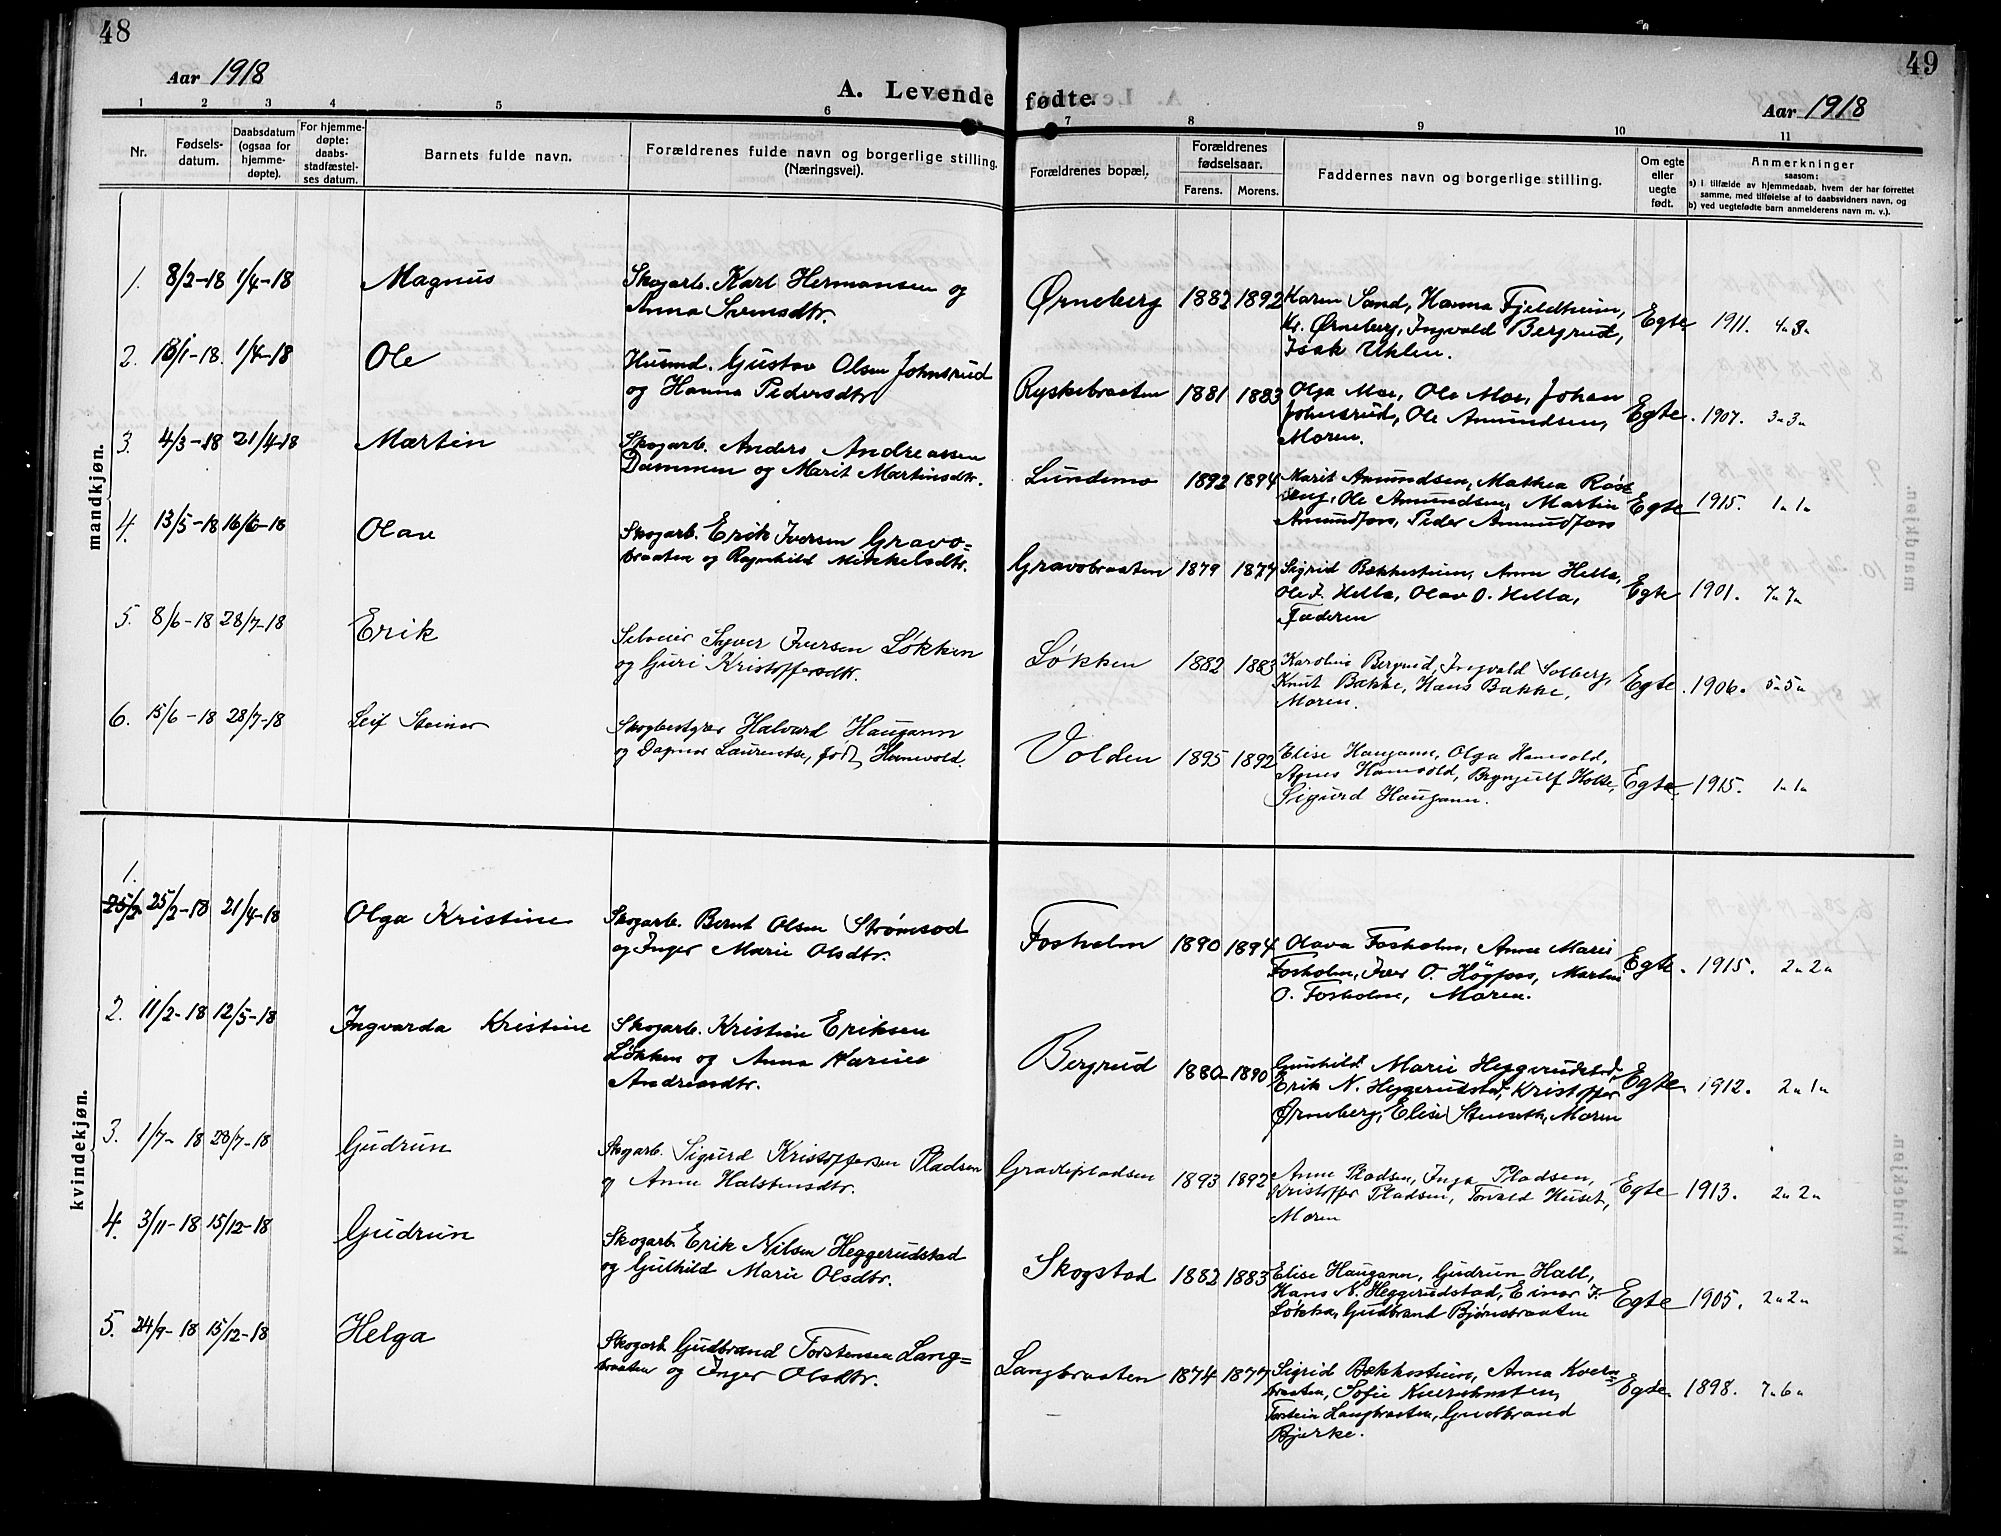 48
Aar 1918
A. Levende fødte.
49
Aar 1918
1 2 3 4 5 6 7 8 9 10 11
Nr.
Fødsels-
datum.
Daabsdatum
(ogsaa for
hjemme-
døpte).
For hjemme-
døpte:
daabs-
stadfæstel-
ses datum.
Barnets fulde navn.
Forældrenes fulde navn og borgerlige stilling.
(Næringsvei).
Forældrenes bopæl.
Forældrenes
fødselsaar.
Farens. Morens.
Faddernes navn og borgerlige stilling.
Om egte
eller
uegte
født.
Anmerkninger
saasom:
a) I tilfælde av hjemmedaab, hvem der har forrettet
samme, med tilføielse af to daabsvidners navn, og
b) ved uegtefødte barn anmelderens navn m. v.).
mandkjøn.
1. 8/2-18 1/4-18 Magnus
Skogarb. Karl Hermansen og
Anna Svensdtr.
Ørneberg 1882 1892
Karen Sand, Hanna Fjeldheim,
Kr. Ørneberg, Ingvald Bergrud,
Isak Uhlen.
Egte 1911. 4 a 8 a
2. 1/4-18 Ole
Husmd. Gustav Olsen Johnsrud
og Hanna Pedersdtr.
Ryskebraaten 1881 1883
Olga Moe, Ole Moe, Johan
Johnsrud, Ole Amundsen,
Moren.
Egte. 1907. 3 a 3 a
3. 4/3-18 21/4-18 Martin
Skogarb. Anders Andreassen
Dammen og Marit Martinsdtr.
Lundemo 1892 1894
Marit Amundsen, Mathea
Ole Amundsen, Martin
Amundsen, Peder Amundsen
Egte 1915. 1 a 1 a
4. 13/5-18 16/6-18 Olav
Skogarb. Erik Iversen Gravo=
braaten og Ragnhild Mikkelsdtr.
Gravobraaten 1879 1877
Sigrid Bækkestuen, Anne Hella,
Ole J. Hella, Olav O. Hella,
Faderen
Egte 1901. 7 a 7 a
5. 8/6-18 28/7-18 Erik
Selveier Syver Iversen Løkken
og Guri Kristoffersdtr.
Løkken 1882 1883
Karoline Bergrud, Ingvald Solberg,
Knut Bakke, Hans Bakke,
Moren.
Egte 1906. 5 a 5 a
6. 15/6-18 28/7-18 Leif Steinar
Skogbestyrer Halvard Haugann
og Dagmar Laurentse, født Hanevold.
Volden 1895 1892
Elise Haugann, Olga Hanevold,
Agnes Hanevold, Brynjulf Holte,
Sigurd Haugann.
Egte. 1915. 1 a 1 a
kvindekjøn.
1.
25/2 25/2-18 21/4-18 Olga Kristine
Skogarb. Bernt Olsen Strømsod
og Inger Marie Olsdtr.
Fosholm 1890 1894
Olava Fosholm, Anne Marie
Fosholm, Iver O. Høgfoss, Martin
O. Fosholm, Moren.
Egte. 1915. 2 a 2 a
2. 11/2-18 12/5-18 Ingvarda Kristine
Skogarb. Kristian Eriksen
Løkken og Anna Karine
Andreasdtr.
Bergrud 1880- 1890
Gunhild Marie Heggerudstad,
Erik N. Heggerudstad, Kristoffer
Ørneberg, Elise Stenseth, Moren
Egte. 1912. 2 a 1 a
3. 1/7-18 28/7-18 Gudrun
Skogarb. Sigurd Kristoffersen Pladsen
og Anne Halstensdtr.
Gravlipladsen 1893 1892
Anne Pladsen, Inga Pladsen,
Kristoffer Pladsen, Torvald Huset,
Moren
Egte 1913. 2 a 2 a
4. 3/11-18 15/12-18 Gudrun
Skogarb. Erik Nilsen Heggerudstad
og Gulhild Marie Olsdtr.
Skogstad 1882 1883
Elise Haugann, Gudrun Hall,
Hans N. Heggerudstad, Einar I.
Løkka, Gudbrand Bjørnebraaten
Egte 1905. 2 a 2 a
5. 24/9-18 15/12-18 Helga
Skogarb. Gudbrand Torstensen Lang=
braaten og Inger Olsdtr.
Langbraaten 1874 1877
Sigrid Bækkestuen, Anna Kvern=
braaten, Sofie
Torstein Langbraaten, Gudbrand
Bjerke.
Egte. 1898. 7 a 6 a